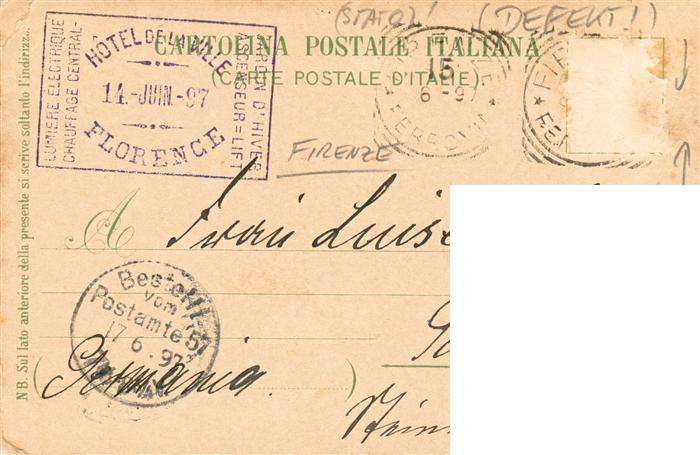 (STATO)! (DEFEKT!)
CARTOLINA POSTALE ITALIANA
(CARTE POSTALE D'ITALIE).
LUMIÈRE ELECTRIQUE
CHAUFFAGE CENTRAL-
HOTEL DE LA VILLE
14.-JUIN.-97
FLORENCE
JARDIN D'HIVER
ASCENSEUR=LIFT
15
6-97
FERROVIA
FIRENZE
A Frau Luise
Bestellt
vom
Postamte 57
17 6.97
(Germania.
NB. Sul lato anteriore della presente si scrive soltanto l'indirizzo.